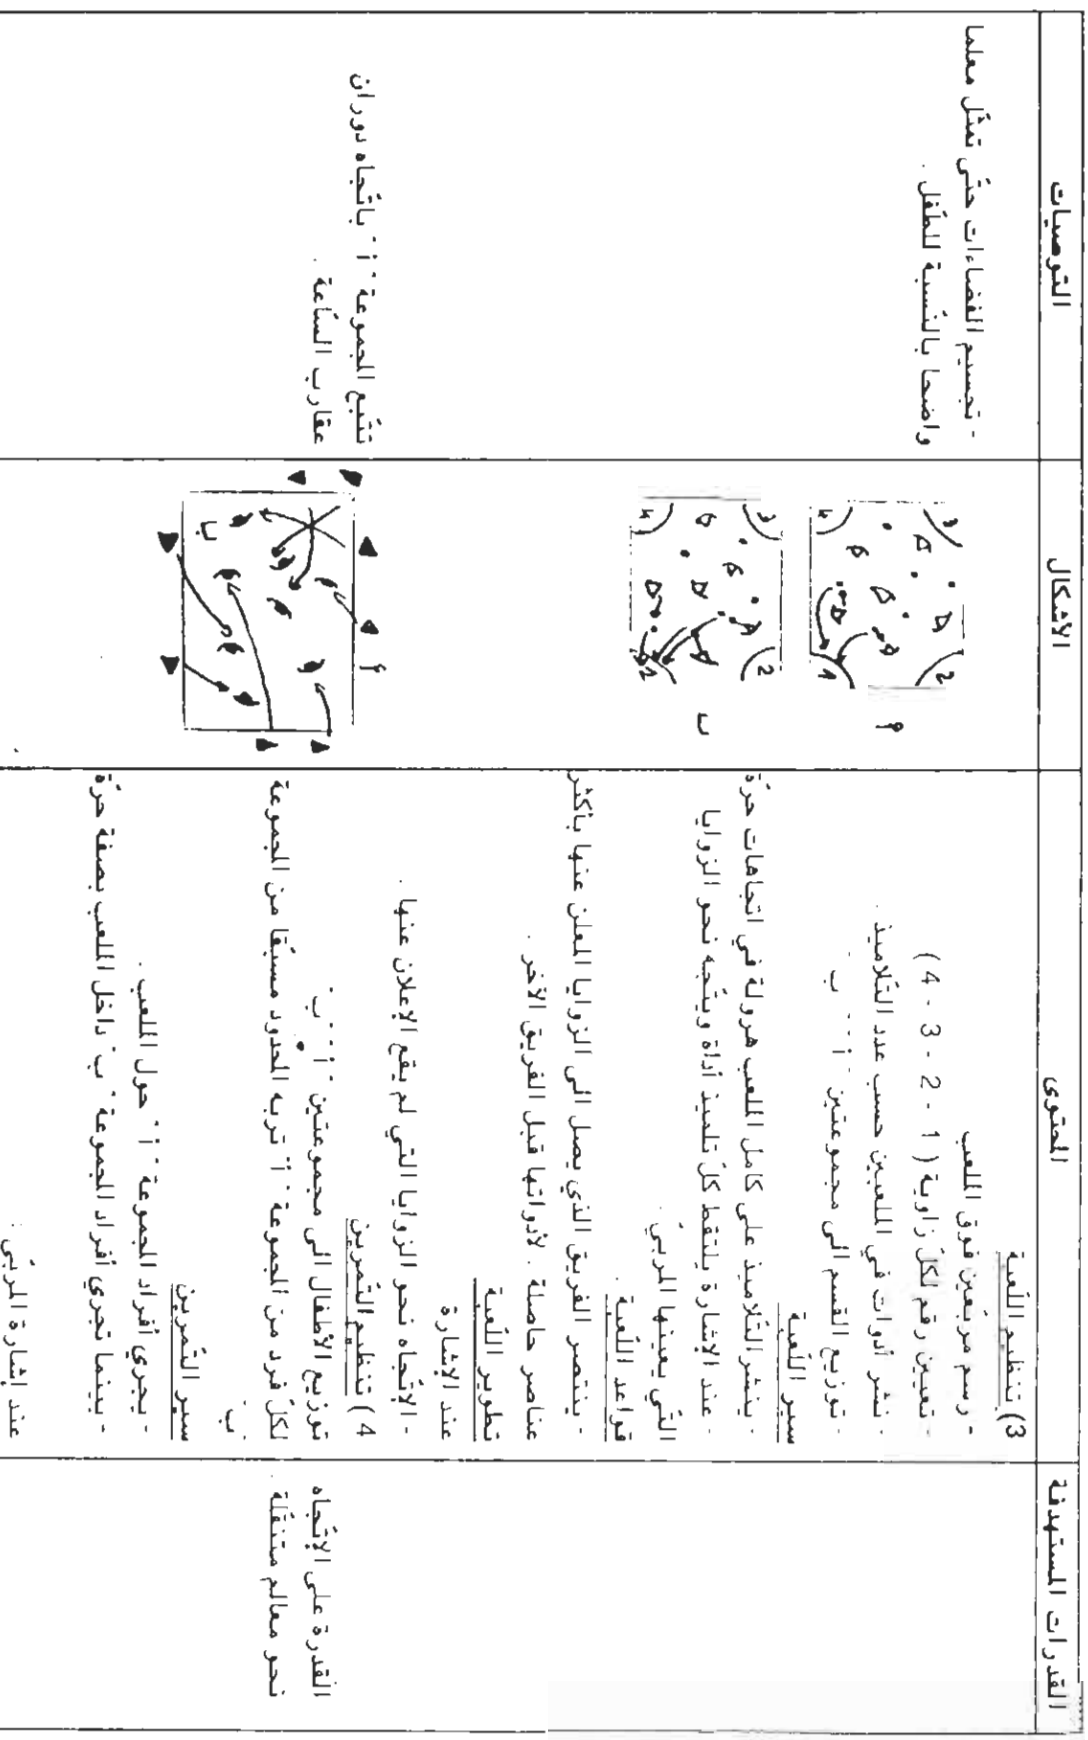 القدرات المستهدفة
المحتوى
الأشكال
التوصيات
القدرة على الإتّجاه
نحو معالم متنقّلة .
3) تنظيم اللّعبة
- رسم مربّعين فوق الملعب
- تعيين رقم لكلّ زاوية ( 1 - 2 - 3 - 4 )
- نشر أدوات في الملعبين حسب عدد التّلاميذ .
- توزيع القسم الى مجموعتين " أ " " ب "
سير اللّعبة
- ينشر التّلاميذ على كامل الملعب هرولة في اتجاهات حرّة
- عند الإشارة يلتقط كلّ تلميذ أداة ويتّجه نحو الزوايا
التّي يعينها المربّي .
قواعد اللّعبة .
- ينتصر الفريق الذي يصل الى الزوايا المعلن عنها بأكثر
عناصر حاصلة . لأدواتها قبل الفريق الآخر .
تطوير اللّعبة
عند الإشارة
- الإتّجاه نحو الزوايا التي لم يقع الإعلان عنها .
4 ) تنظيم التّمرين
توزيع الأطفال الى مجموعتين " أ " " ب "
لكلّ فرد من المجموعة " أ " تربه المحدود مسبّقا من المجموعة
" ب "
سير التّمرين
- يجري أفراد المجموعة " أ " حول الملعب .
- بينما تجري أفراد المجموعة " ب " داخل الملعب بصفة حرّة
عند إشارة المربّي :
أ
2
3
4
1
ب
2
3
4
1
أ
ب
- تجسيم الفضاءات حتّى تمثّل معلما
واضحا بالنّسبة للطّفل .
تتّبع المجموعة " أ " باتّجاه دوران
عقارب السّاعة .